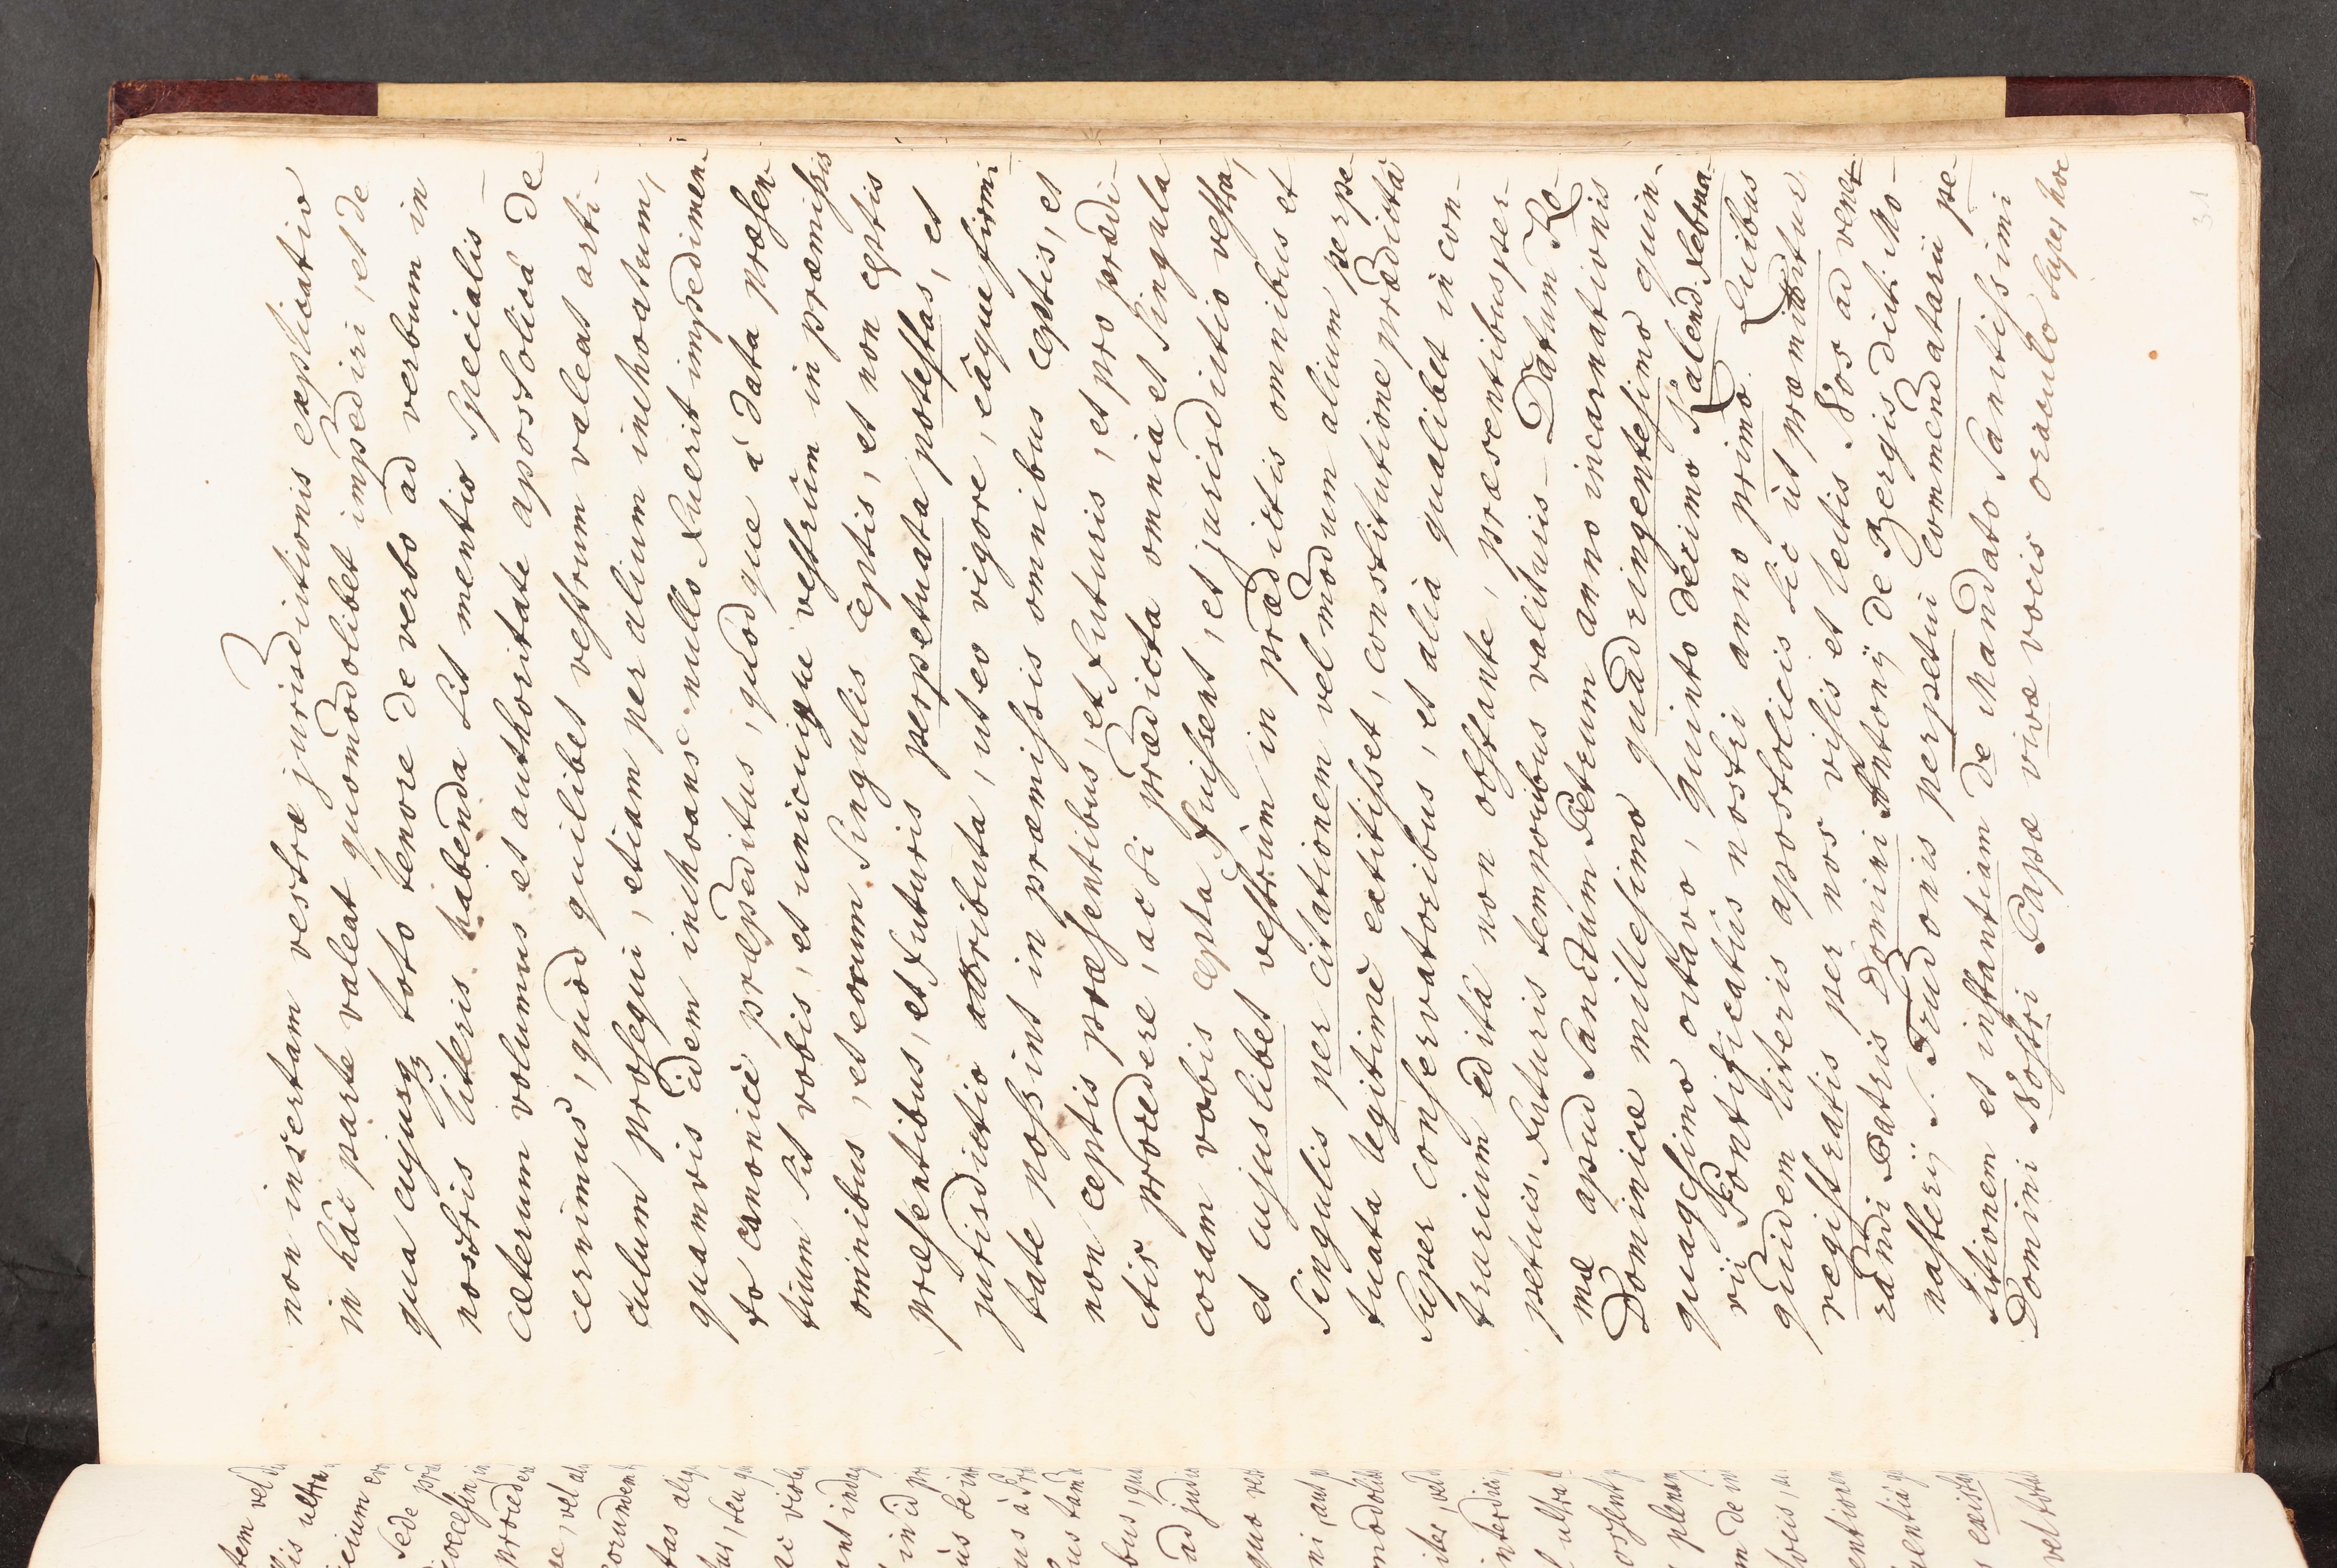 non insertam vestræ jurisdictionis explicatio
in hâc parte valeat quomodolibet impediri, et de
qua cujusq3 toto tenore de verbo ad verbum in
nostris literis habenda sit mentio specialis -
Cæterum volumus et authoritate apostolicâ de
cernimus, quòd quilibet vestrum valeat arti-
culum prosequi, etiam per alium inchoatum,
quamvis idem inchoans nullo fuerit impedimen-
to canonicè præpeditus, quòdque à data præsen-
tium sit vobis, et unicuique vestrûm in præmissis
omnibus, et eorum singulis ceptis, et non ceptis
præsentibus, et futuris perpetuata potestas, et
jurisdictio attributa, ut eo vigore, eâque firmi-
tate possint in præmissis omnibus ceptis, et
non ceptis præsentibus, et futuris, et pro prædi-
ctis procedere, ac si prædicta omnia et singula
coram vobis cepta fuissent, et jurisdictio vestra,
et cujuslibet vestrûm in prædictis omnibus et
singulis per citationem vel modum alium perpe-
tuata legitimè extitisset, constitutione prædictâ
super conservatoribus, et aliâ qualibet in con-
trarium editâ non obstante, præsentibus per-
petuis, futuris temporibus valituris - Datum Ro-
mæ apud Sanctum Petrum anno incarnationis
Dominicæ millesimo quadringentesimo quin-
quagesimo octavo, quinto decimo Kalend. Februa-
rii Pontificatûs nostri anno primo. Quibus
quidem literis apostolicis sic ùt præmittitur
registratis per nos visis et lectis Nos ad vene-
randi Patris Domini Antonij de Bergis dicti mo-
nasterij S. Trudonis perpetui Commendatarii pe-
titionem et instantiam de mandato sanctissimi
Domini Nostri Papæ vivæ vocis oraculo super hoc
31